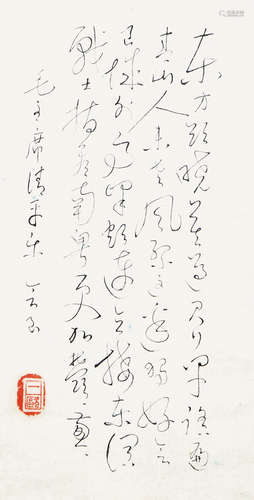 东方欲晓莫道君行早踏遍
青山人未老風景这边独好会
昌城外高峰颠连直接东溟
戰士指看南粤更加郁郁葱葱
毛主席清平乐